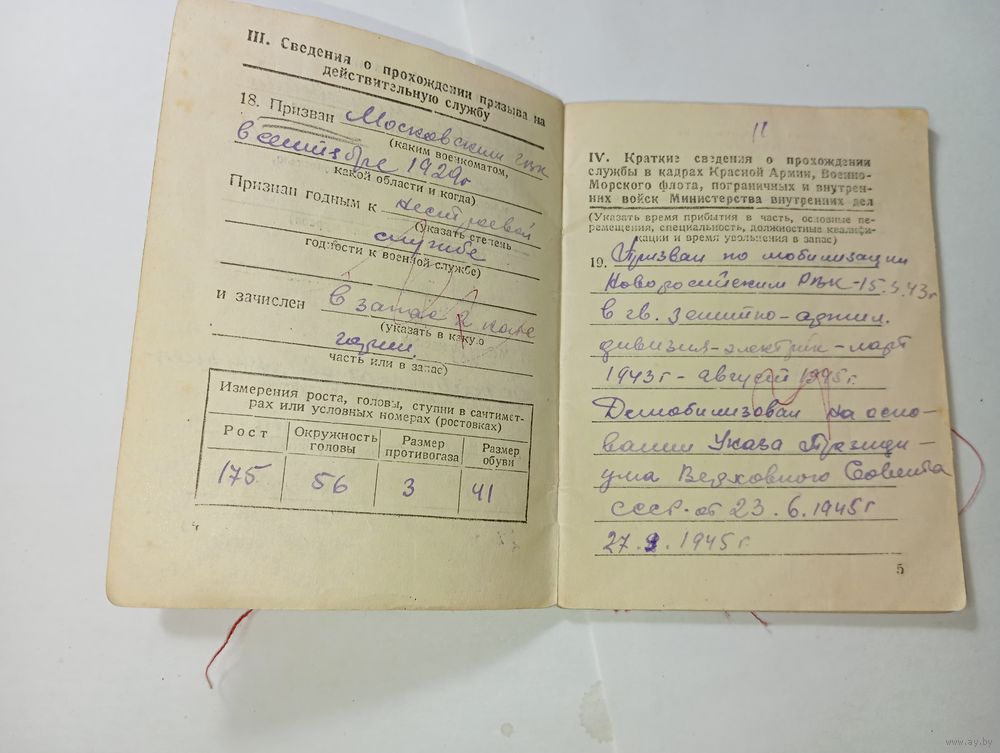 III. Сведения о прохождении призыва на
действительную службу
18. Призван Московским ГВК
(каким военкоматом,
в сентябре 1929г
какой области и когда)
Признан годным к нестроевой
(указать степень
службе
годности к военной службе)
и зачислен в запас 2 кате
(указать в какую
гории.
часть или в запас)
Измерения роста, головы, ступни в сантимет-
рах или условных номерах (ростовках)
Рост Окружность головы Размер противогаза Размер обуви
175 56 3 41
4
11
IV. Краткие сведения о прохождении
службы в кадрах Красной Армии, Военно-
Морского флота, пограничных и внутрен-
них войск Министерства внутренних дел
(Указать время прибытия в часть, основные пе-
ремещения, специальность, должностные квалифи-
кации и время увольнения в запас)
19. Призван по мобилизации
Новоросийским РВК-15.3.43г
в гв. зенитно-
дивизия-электрик-март
1943г-август 1945г.
Демобилизован на осно-
вании Указа Президи-
ума Верховного Совета
СССР-от 23.6.1945г
27.9.1945г.
5
www.ay.by